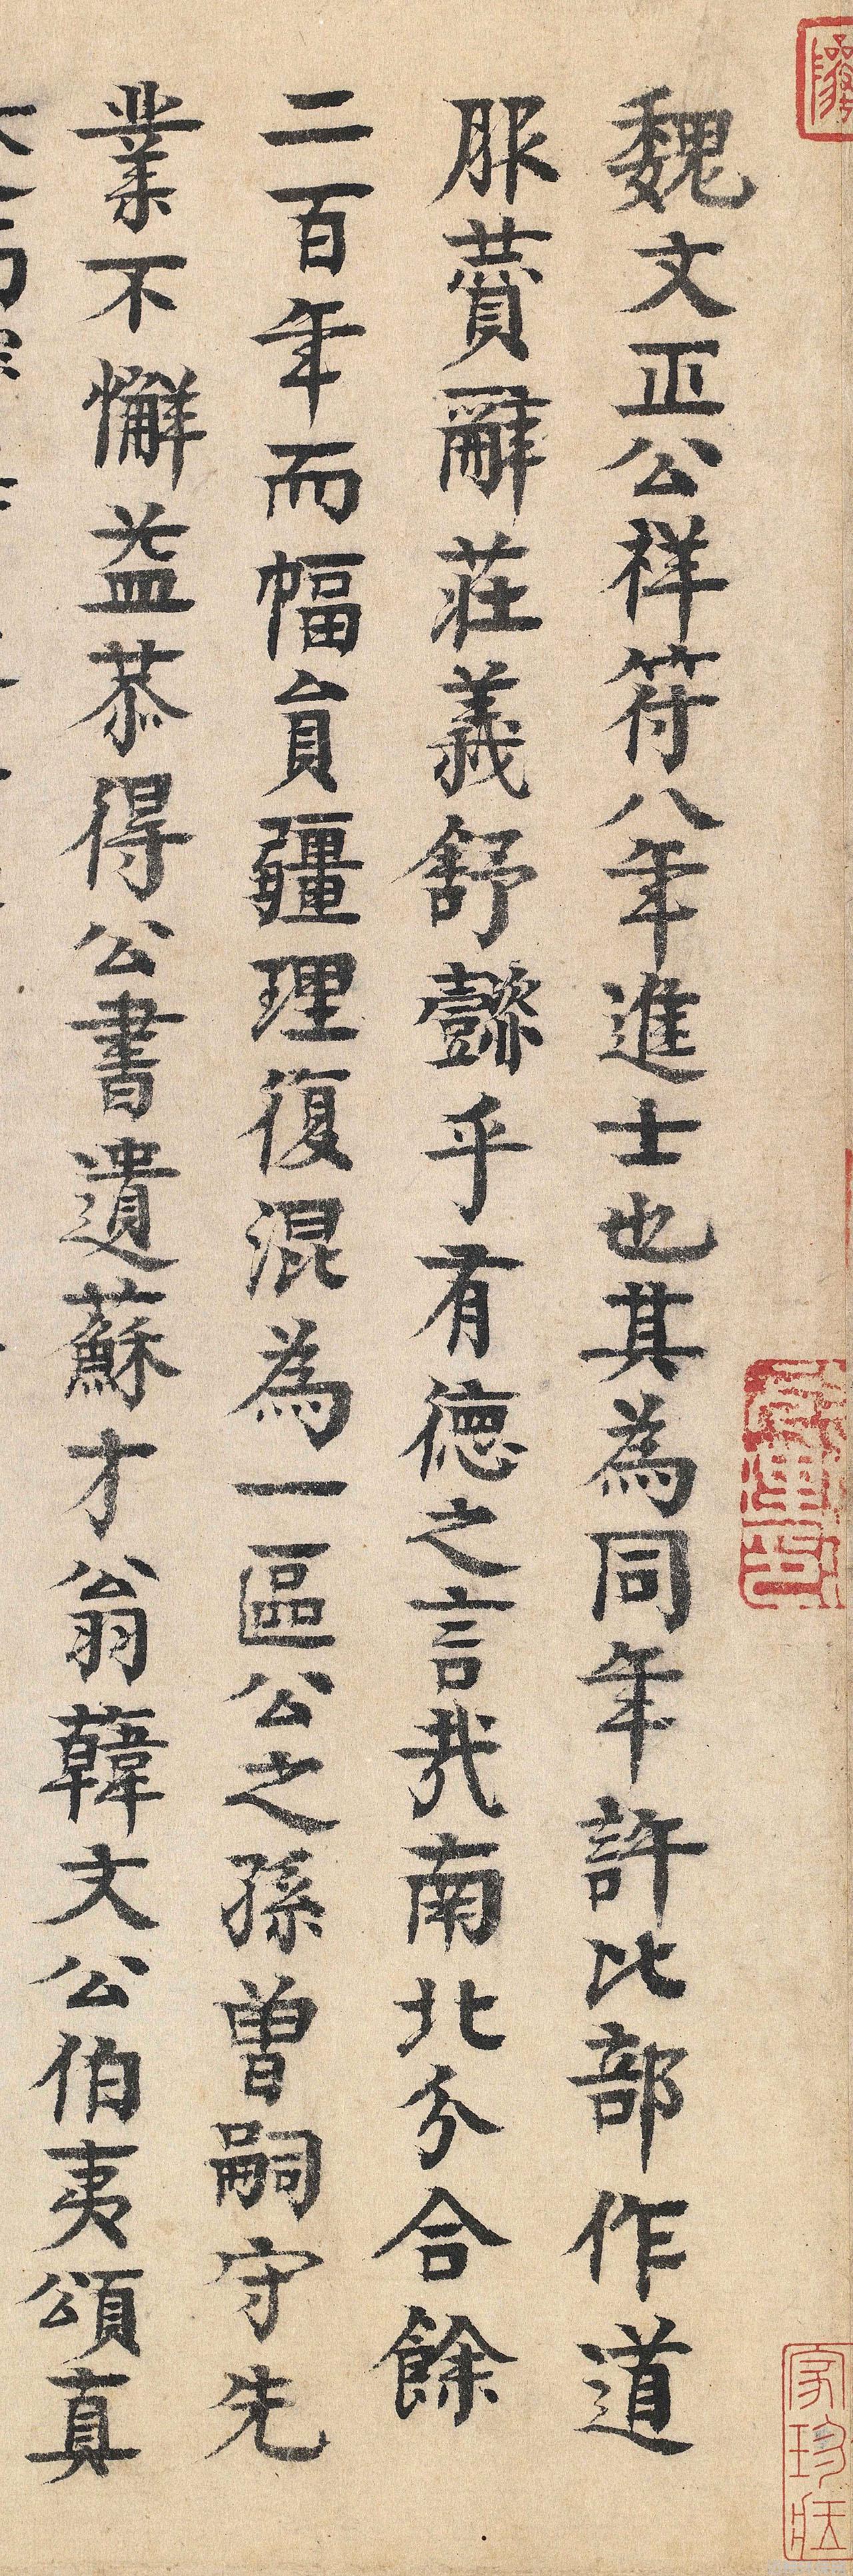 魏文正公祥符八年進士也其為同年許比部作道
服賛辭莊義舒懿乎有德之言哉南北分合餘
二百年而幅員疆理復混為一區公之孫曽嗣守先
業不懈益恭得公書遺蘇才翁韓文公伯夷頌真
家珍藏